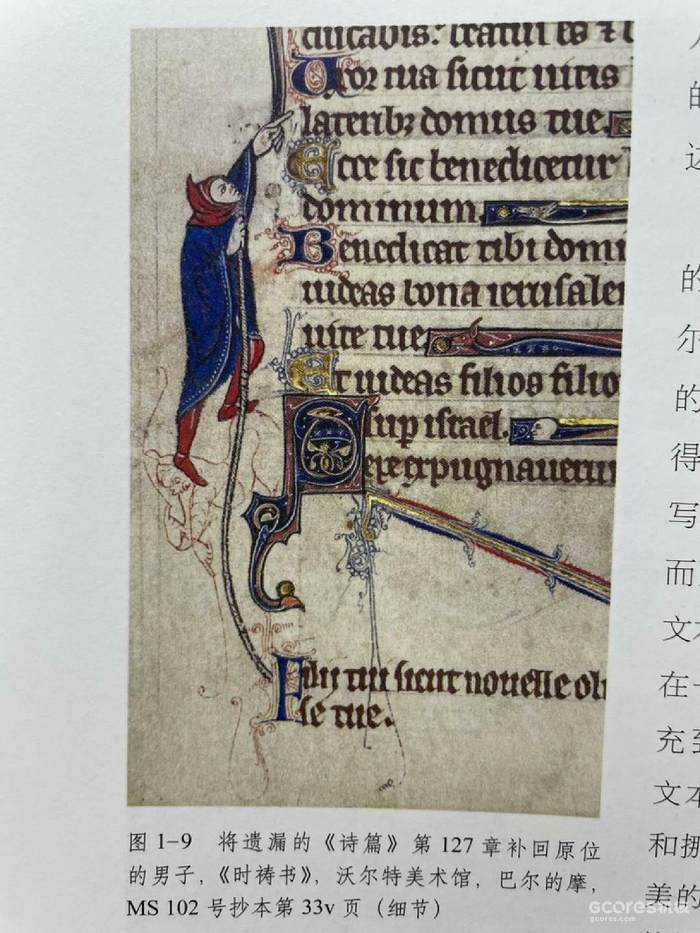 ducabis: beatus es ⁊
Uxor tua sicut uitis
laterib; domus tue.
Ecce sic benedicetur
dominum.
Benedicat tibi domi
uideas bona ierusale
uite tue.
Et uideas filios filio
sup israel.
Sepe expugnauerun
Filii tui sicut nouelle oli
se tue.
图 1-9 将遗漏的《诗篇》第 127 章补回原位
的男子，《时祷书》，沃尔特美术馆，巴尔的摩，
MS 102 号抄本第 33v 页（细节）
的
的
尔
的
得
写
而
文
在一
充到
文本
和挪
美的
GCORES机核
gcores.com